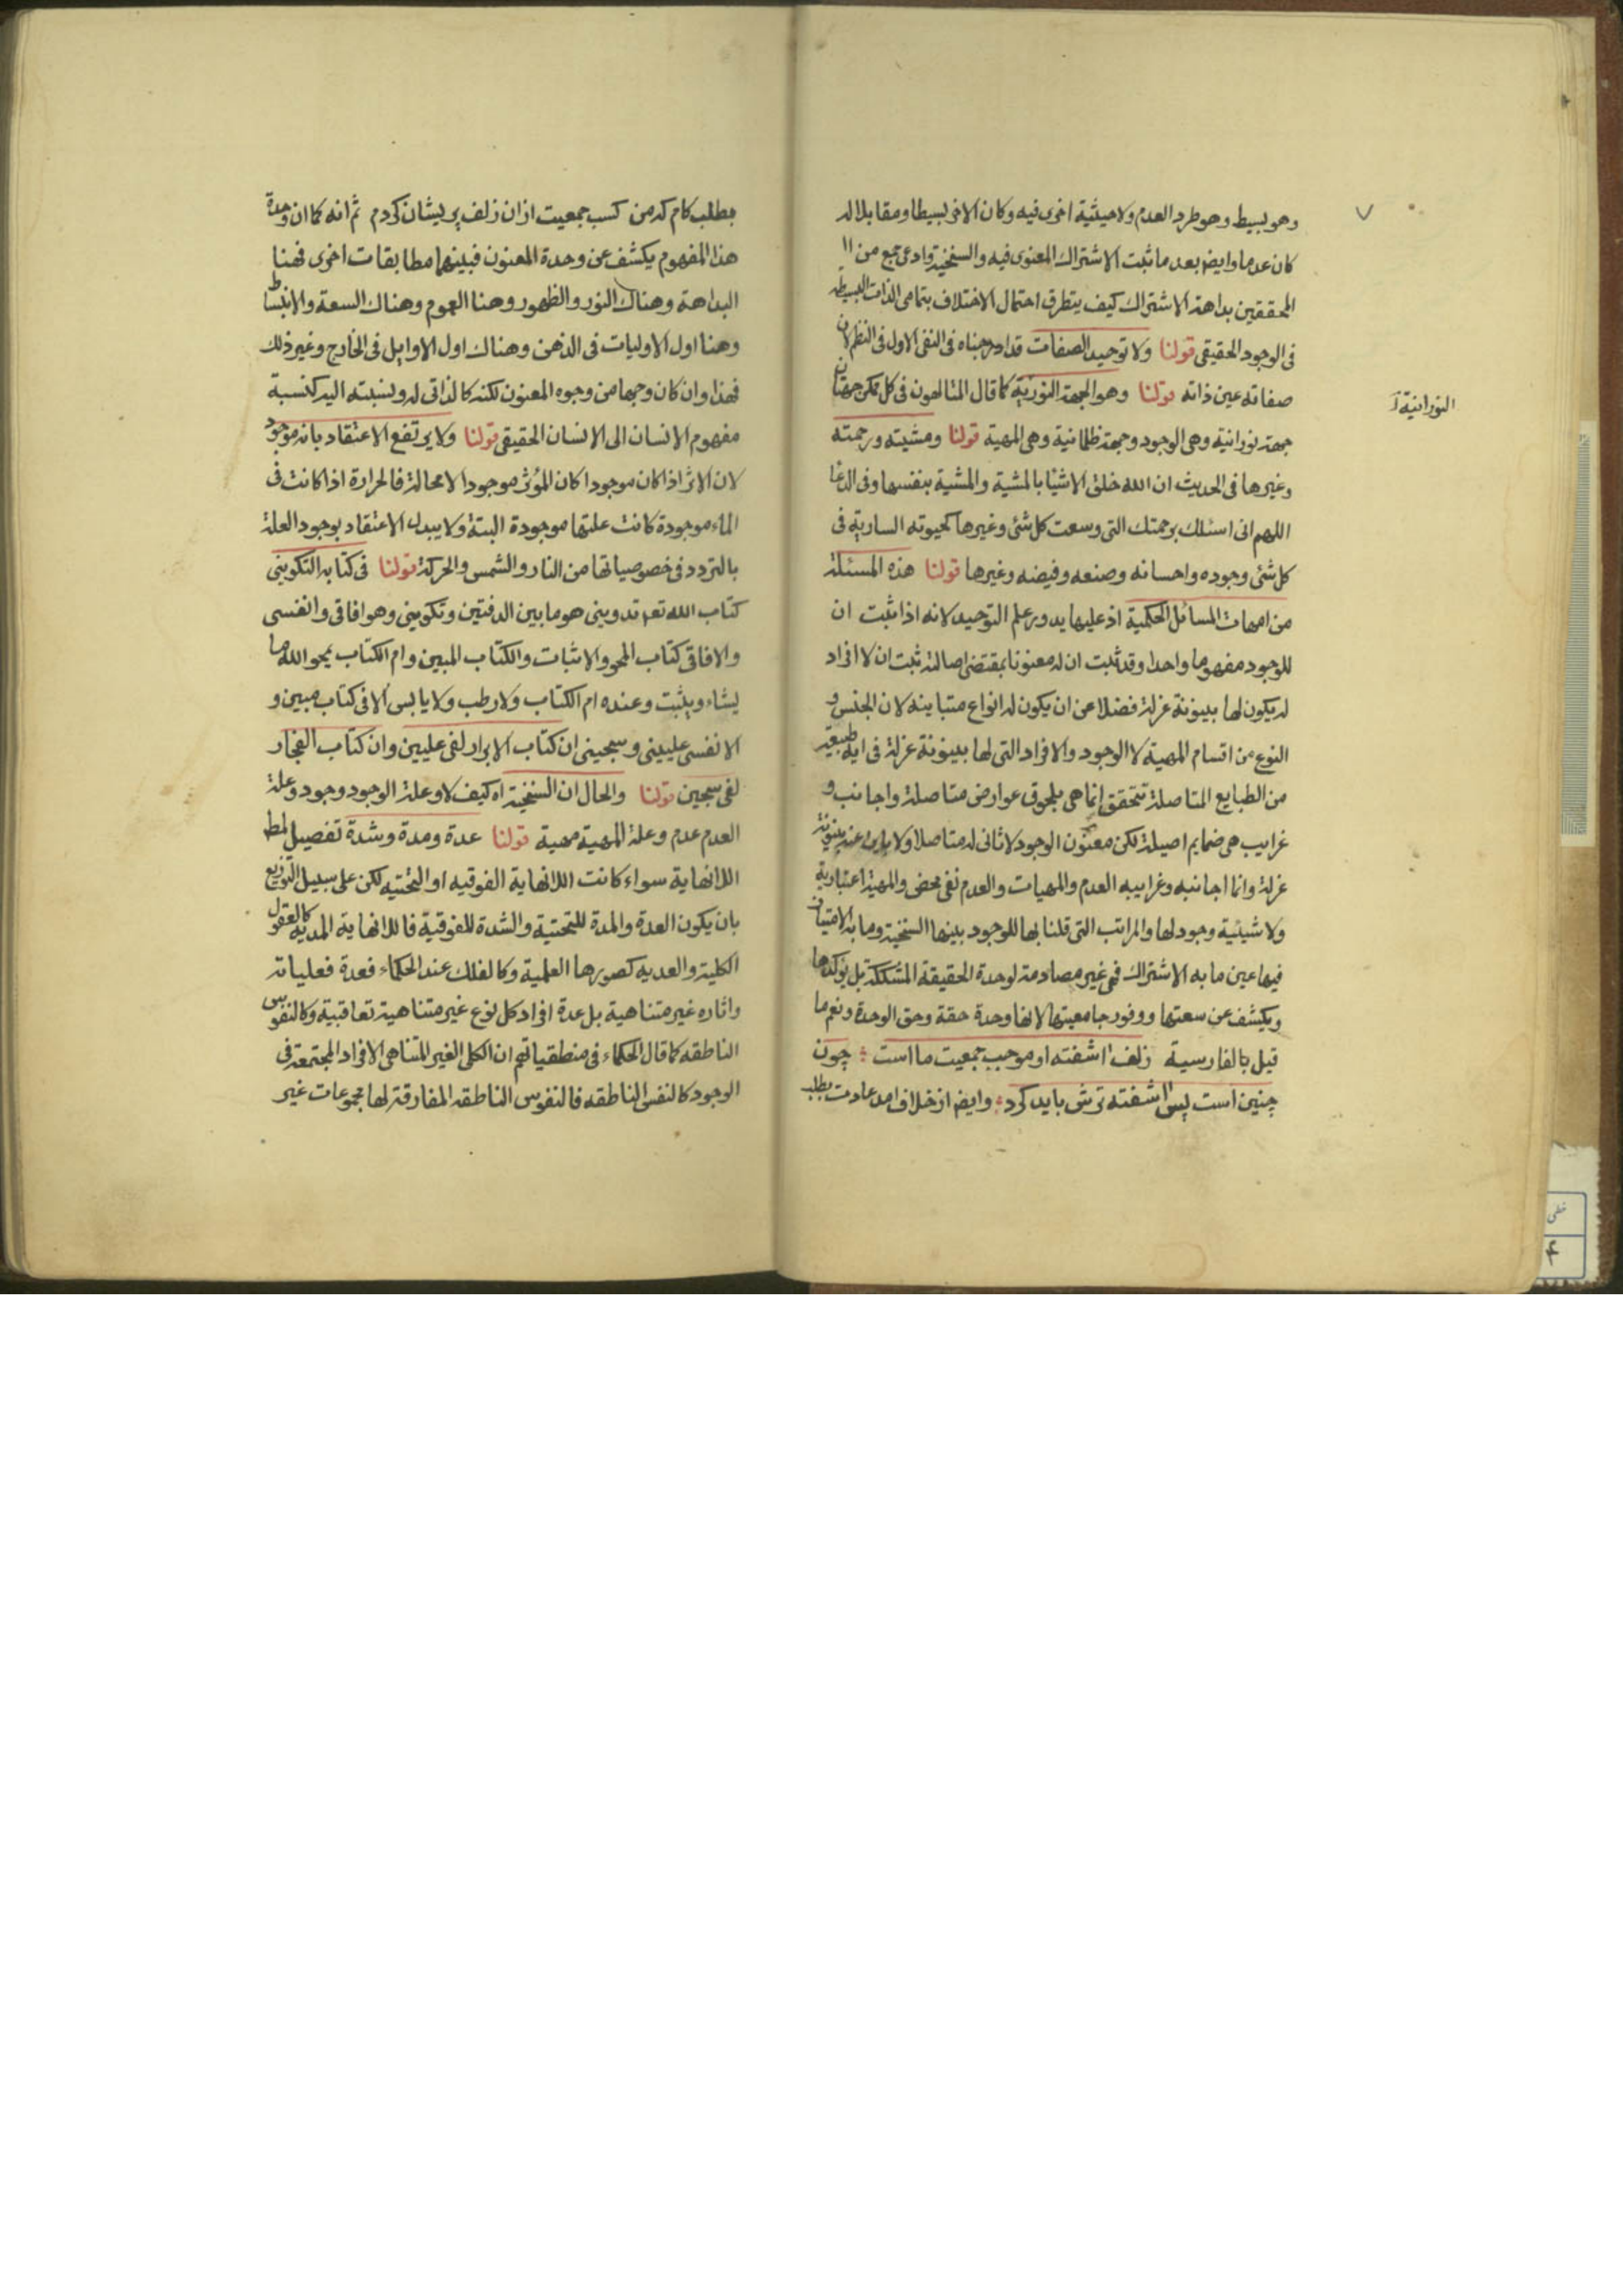 وهو بسيط وهو طرد العدم ولا حيثية اخرى فيه وكان الاخر بسيطا ومقابلا له
كان عدما وايض بعد ما ثبت الاشتراك المعنوى فيه والسنخية وادعى جمع من
المحققين بداهة الاشتراك كيف يتطرق احتمال الاختلاف بتمامى الذات البسيطة
فى الوجود الحقيقى قولنا ولا توحيد الصفات قد ادرجناه فى النفى الاول فى النظم لان
صفاته عين ذاته قولنا وهو الجهة النورية كما قال المتالهون فى كل ممكن جهتان
النورانية
جهة نورانية وهى الوجود وجهة ظلمانية وهى المهية قولنا ومشيته ورحمته
وغيرها فى الحديث ان الله خلق الاشيا بالمشية والمشية بنفسها وفى الدعا
اللهم انى اسئلك برحمتك التى وسعت كل شئ وغيرها كحيوته السارية فى
كل شئ وجوده واحسانه وصنعه وفيضه وغيرها قولنا هذه المسئلة
من امهات المسائل الحكمية اذ عليها يدور علم التوحيد لانه اذا ثبت ان
للوجود مفهوما واحدا وقد ثبت ان له معنونا بمقتضى اصالته ثبت ان لا افراد
له يكون لها بينونة عزلة فضلا عن ان يكون له انواع متباينة لان الجنس و
النوع من اقسام المهية لا الوجود والافراد التى لها بينونة عزلة فى اية طبيعة
من الطبايع المتاصلة تتحقق انما هى بلحوق عوارض متاصلة واجانب و
غرايب هى ضمايم اصيلة لكن معنون الوجود لا ثانى له متاصلا ولا بينونة
عزلة وانما اجانبه وغرايبه العدم والمهيات والعدم نفى محض والمهية اعتبارية
ولا شيئية وجود لها والمراتب التى قلنا بها للوجود بينها السنخية وما به الامتياز
فيها عين ما به الاشتراك فهى غير مصادمة لوحدة الحقيقة المشككة بل يؤكدها
ويكشف عن سعتها ووفور جامعيتها لانها وحدة حقة وحق الوحدة ونعم ما
قيل بالفارسية زلف اشفته او موجب جمعيت ما است چون
چنين است پس اشفته ترش بايد كرد وايض از خلاف امد عادت بطلب
بطلب كام كه من كسب جمعيت از ان زلف پريشان كردم ثم انه كما ان وحدة
هذا المفهوم يكشف عن وحدة المعنون فبينهما مطابقات اخرى فهنا
البداهة وهناك النور والظهور وهنا العموم وهناك السعة والانبساط
وهنا اول الاوليات فى الذهن وهناك اول الاوايل فى الخارج وغير ذلك
فهذا وان كان وجها من وجوه المعنون لكنه كالذاتى له ونسبته اليه كنسبة
مفهوم الانسان الى الانسان الحقيقى قولنا ولا يرتفع الاعتقاد بانه موجود
لان الاثر اذا كان موجودا كان المؤثر موجودا لا محالة فالحرارة اذا كانت فى
الماء موجودة كانت علتها موجودة البتة ولا يبدل الاعتقاد بوجود العلة
بالتردد فى خصوصياتها من النار والشمس والحركة قولنا فى كتابه التكوينى
كتاب الله تعه تدوينى هو ما بين الدفتين وتكوينى وهو افاقى وانفسى
والافاقى كتاب المحو والاثبات والكتاب المبين وام الكتاب يمحو الله ما
يشاء ويثبت وعنده ام الكتاب ولا رطب ولا يابس الا فى كتاب مبين و
الانفسى علييى وسجينى ان كتاب الابرار لفى عليين وان كتاب الفجار
لفى سجين قولنا والحال ان السنخية اه كيف لا وعلة الوجود وجود وعلة
العدم عدم وعلة المهية مهية قولنا عدة ومدة وشدة تفصيل لمط
اللانهاية سواء كانت اللانهاية الفوقيه او التحتيه لكن على سبيل التوزيع
بان يكون العدة والمدة للتحتية والشدة للفوقية فاللانهاية المديه كالعقول
الكلية والعديه كصورها العلمية وكالفلك عند الحكماء فعدة فعلياته
واثاره غير متناهية بل عدة افراد كل نوع غير متناهية تعاقبية وكالنفوس
الناطقه كما قال الحكماء فى منطقياتهم ان الكلى الغير المتناهى الافراد المجتمعة فى
الوجود كالنفس الناطقه فالنفوس الناطقه المفارقة لها مجموعات غير
خطى